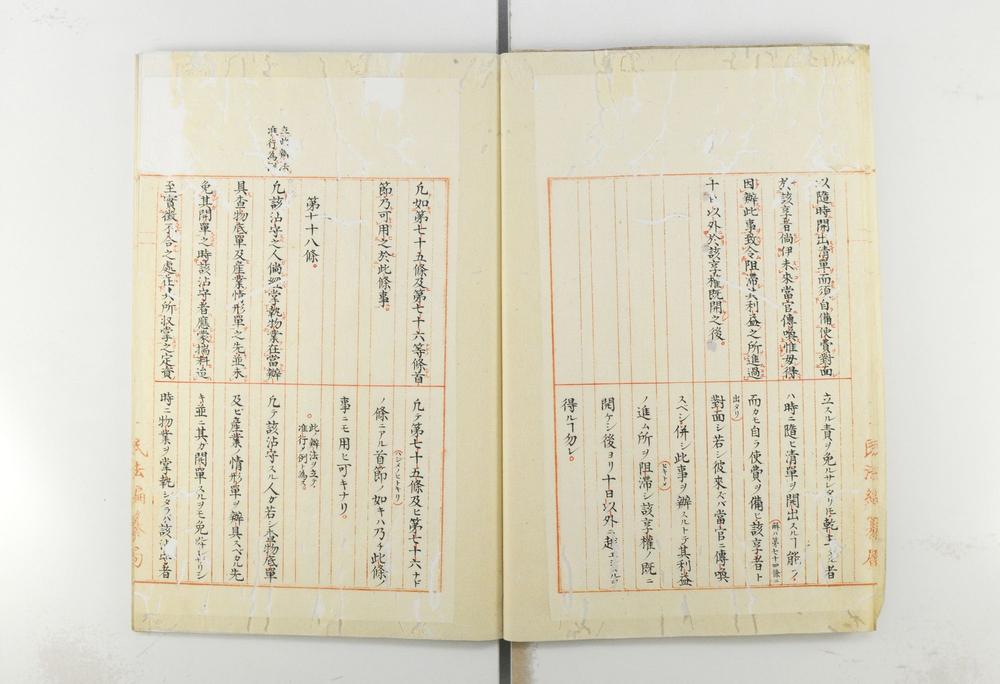 以隨時開出清單而須自備使費對面
於該享者倘伊未來當官傳喚惟毋得
因辦此事致令阻滯其利益之所進過
十日以外於該享權既開之後。
立スル責ヲ免ルサレタリ𪜈乾士ニル者
ハ時ニ隨ヒ清單ヲ開出スルヿ能フ
而カモ自ラ使費ヲ備ヒ該享者ト
(解ハ第七十四條ニ
出タリ)
對面シ若シ彼來ズバ當官ニ傳喚
スベシ併シ此事ヲ辦スルトテ其利益
ノ進ム所ヲ阻滯シ該享權ノ既ニ
(ヒキトメ)
開ケシ後ヨリ十日以外ニ
得ルヿ勿レ。
民法編纂局
凡如第七十五條及第七十六等條首
節乃可用之於此條事。
第七十八條。
立此辦法
準行為例
凡該沾守之人倘經掌執物業在當辦
具查物底單及產業情形單之先並未
免其開單之時該沾守者應蒙揣料追
至實徵不合之處在人所収掌之定資
凡テ第七十五條及ヒ第七十六ナド
(ハジメノヒトキリ)
ノ條ニアル首節ノ如キハ乃チ此條ノ
事ニモ用ヒ可キナリ。
。此辦法ヲ立テ
準行ノ例ト為ス。
凡テ該沾守スル人ガ若シ查物底單
及ビ產業ノ情形單ヲ辦具スベカル先
キ並ニ其ガ開單スルヲモ免ルサレザリシ
時ニ物業ヲ掌執シタラバ該沾守者
民法編纂局